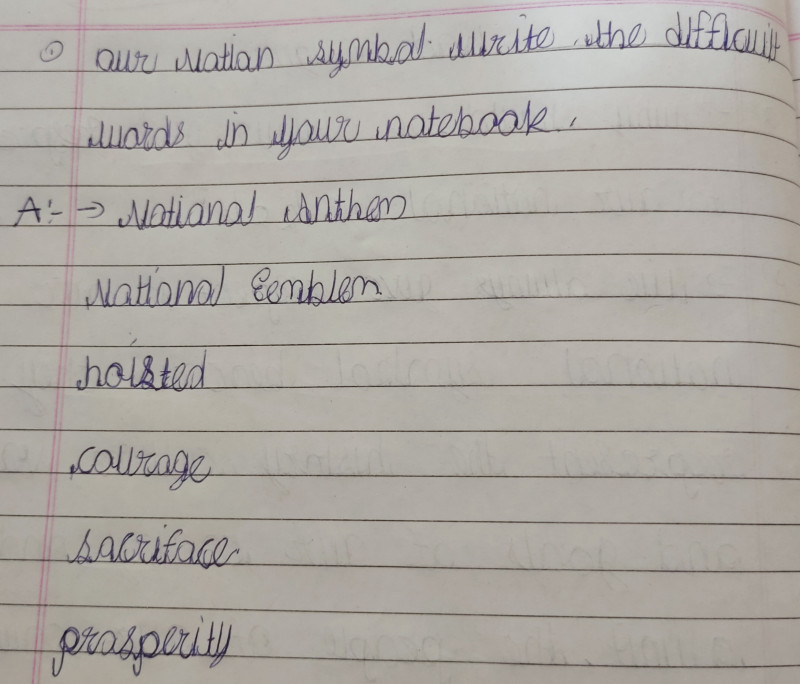 ① our Nation symbol. Write the difficult
words in your notebook.
A:- → National Anthem
National Eemblem
hoisted
courage
sacriface
prosperity